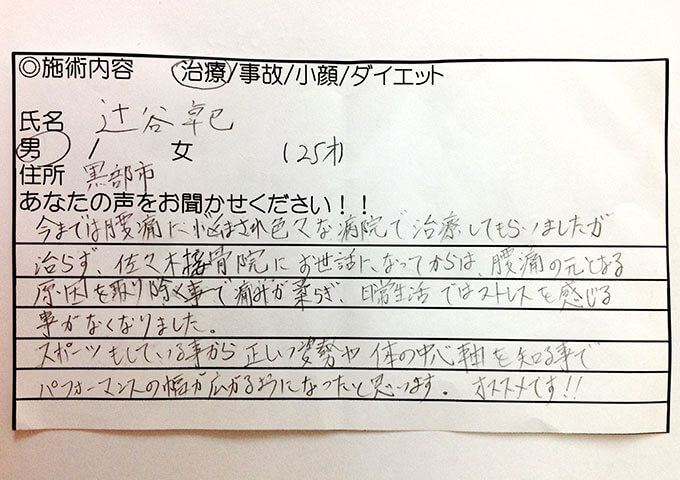 ◎施術内容 治療/事故/小顔/ダイエット
氏名 辻谷卓巳
男 / 女 (25才)
住所 黒部市
あなたの声をお聞かせください！！
今までは腰痛に悩まされ色々な病院で治療してもらいましたが
治らず、佐々木接骨院にお世話になってからは、腰痛の元となる
原因を取り除く事で痛みが柔らぎ、日常生活ではストレスを感じる
事がなくなりました。
スポーツもしている事から正しい姿勢や体の中心軸を知る事で
パフォーマンスの幅が広がるようになったと思います。 オススメです!!